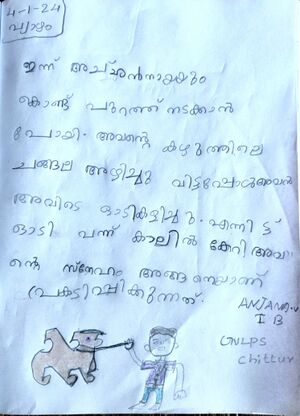 4-1-24
വ്യാഴം
ഇന്ന് അച്ഛൻനായയും
കൊണ്ട് പുറത്ത് നടക്കാൻ
പോയി. അവന്റെ കഴുത്തിലെ
ചങ്ങല അഴിച്ചു വിട്ടപ്പോൾഅവൻ
അവിടെ ഓടികളിച്ചു. എന്നിട്ട്
ഓടി വന്ന് കാലിൽ കേറി അവ
ന്റെ സ്നേഹം അങ്ങനെയാണ്
പ്രകടിപ്പിക്കുന്നത്.
I B
GWLPS
chittur